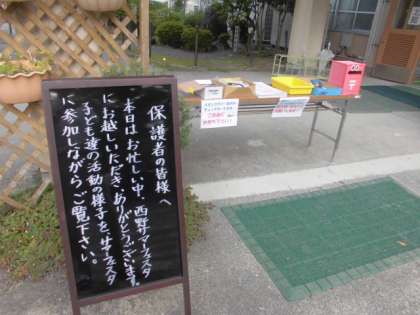 保護者の皆様へ
本日はお忙しい中、西野サマーフェスタ
にお越しいただき、ありがとうございます。
子ども達の活動の様子を、サマーフェスタ
に参加しながら、ご覧下さい。